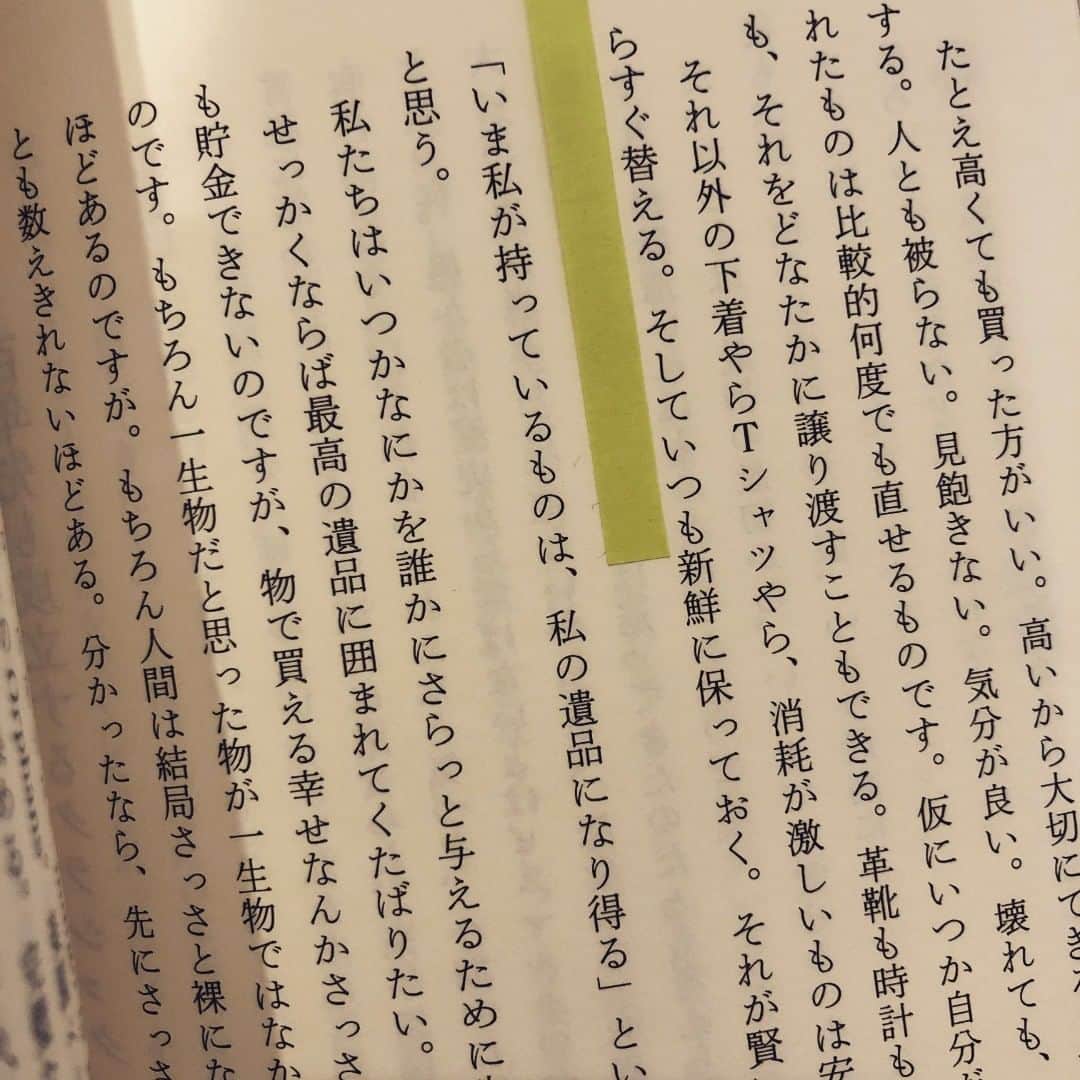 たとえ高くても買った方がいい。高いから大切にでき
する。人とも被らない。見飽きない。気分が良い。壊れても、
れたものは比較的何度でも直せるものです。仮にいつか自分が
も、それをどなたかに譲り渡すこともできる。革靴も時計も
それ以外の下着やらTシャツやら、消耗が激しいものは安
らすぐ替える。そしていつも新鮮に保っておく。それが賢
「いま私が持っているものは、私の遺品になり得る」とい
と思う。
私たちはいつかなにかを誰かにさらっと与えるために
せっかくならば最高の遺品に囲まれてくたばりたい。
も貯金できないのですが、物で買える幸せなんかさっさ
のです。もちろん一生物だと思った物が一生物ではなか
ほどあるのですが。もちろん人間は結局さっさと裸にな
とも数えきれないほどある。分かったなら、先にさっさ